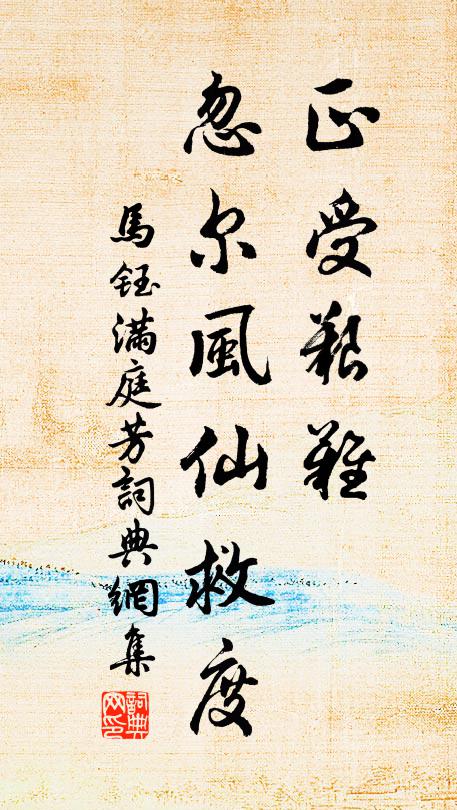 正受艱難
忽尔風仙救度
馬鈺滿庭芳詞典網集
詞典網印